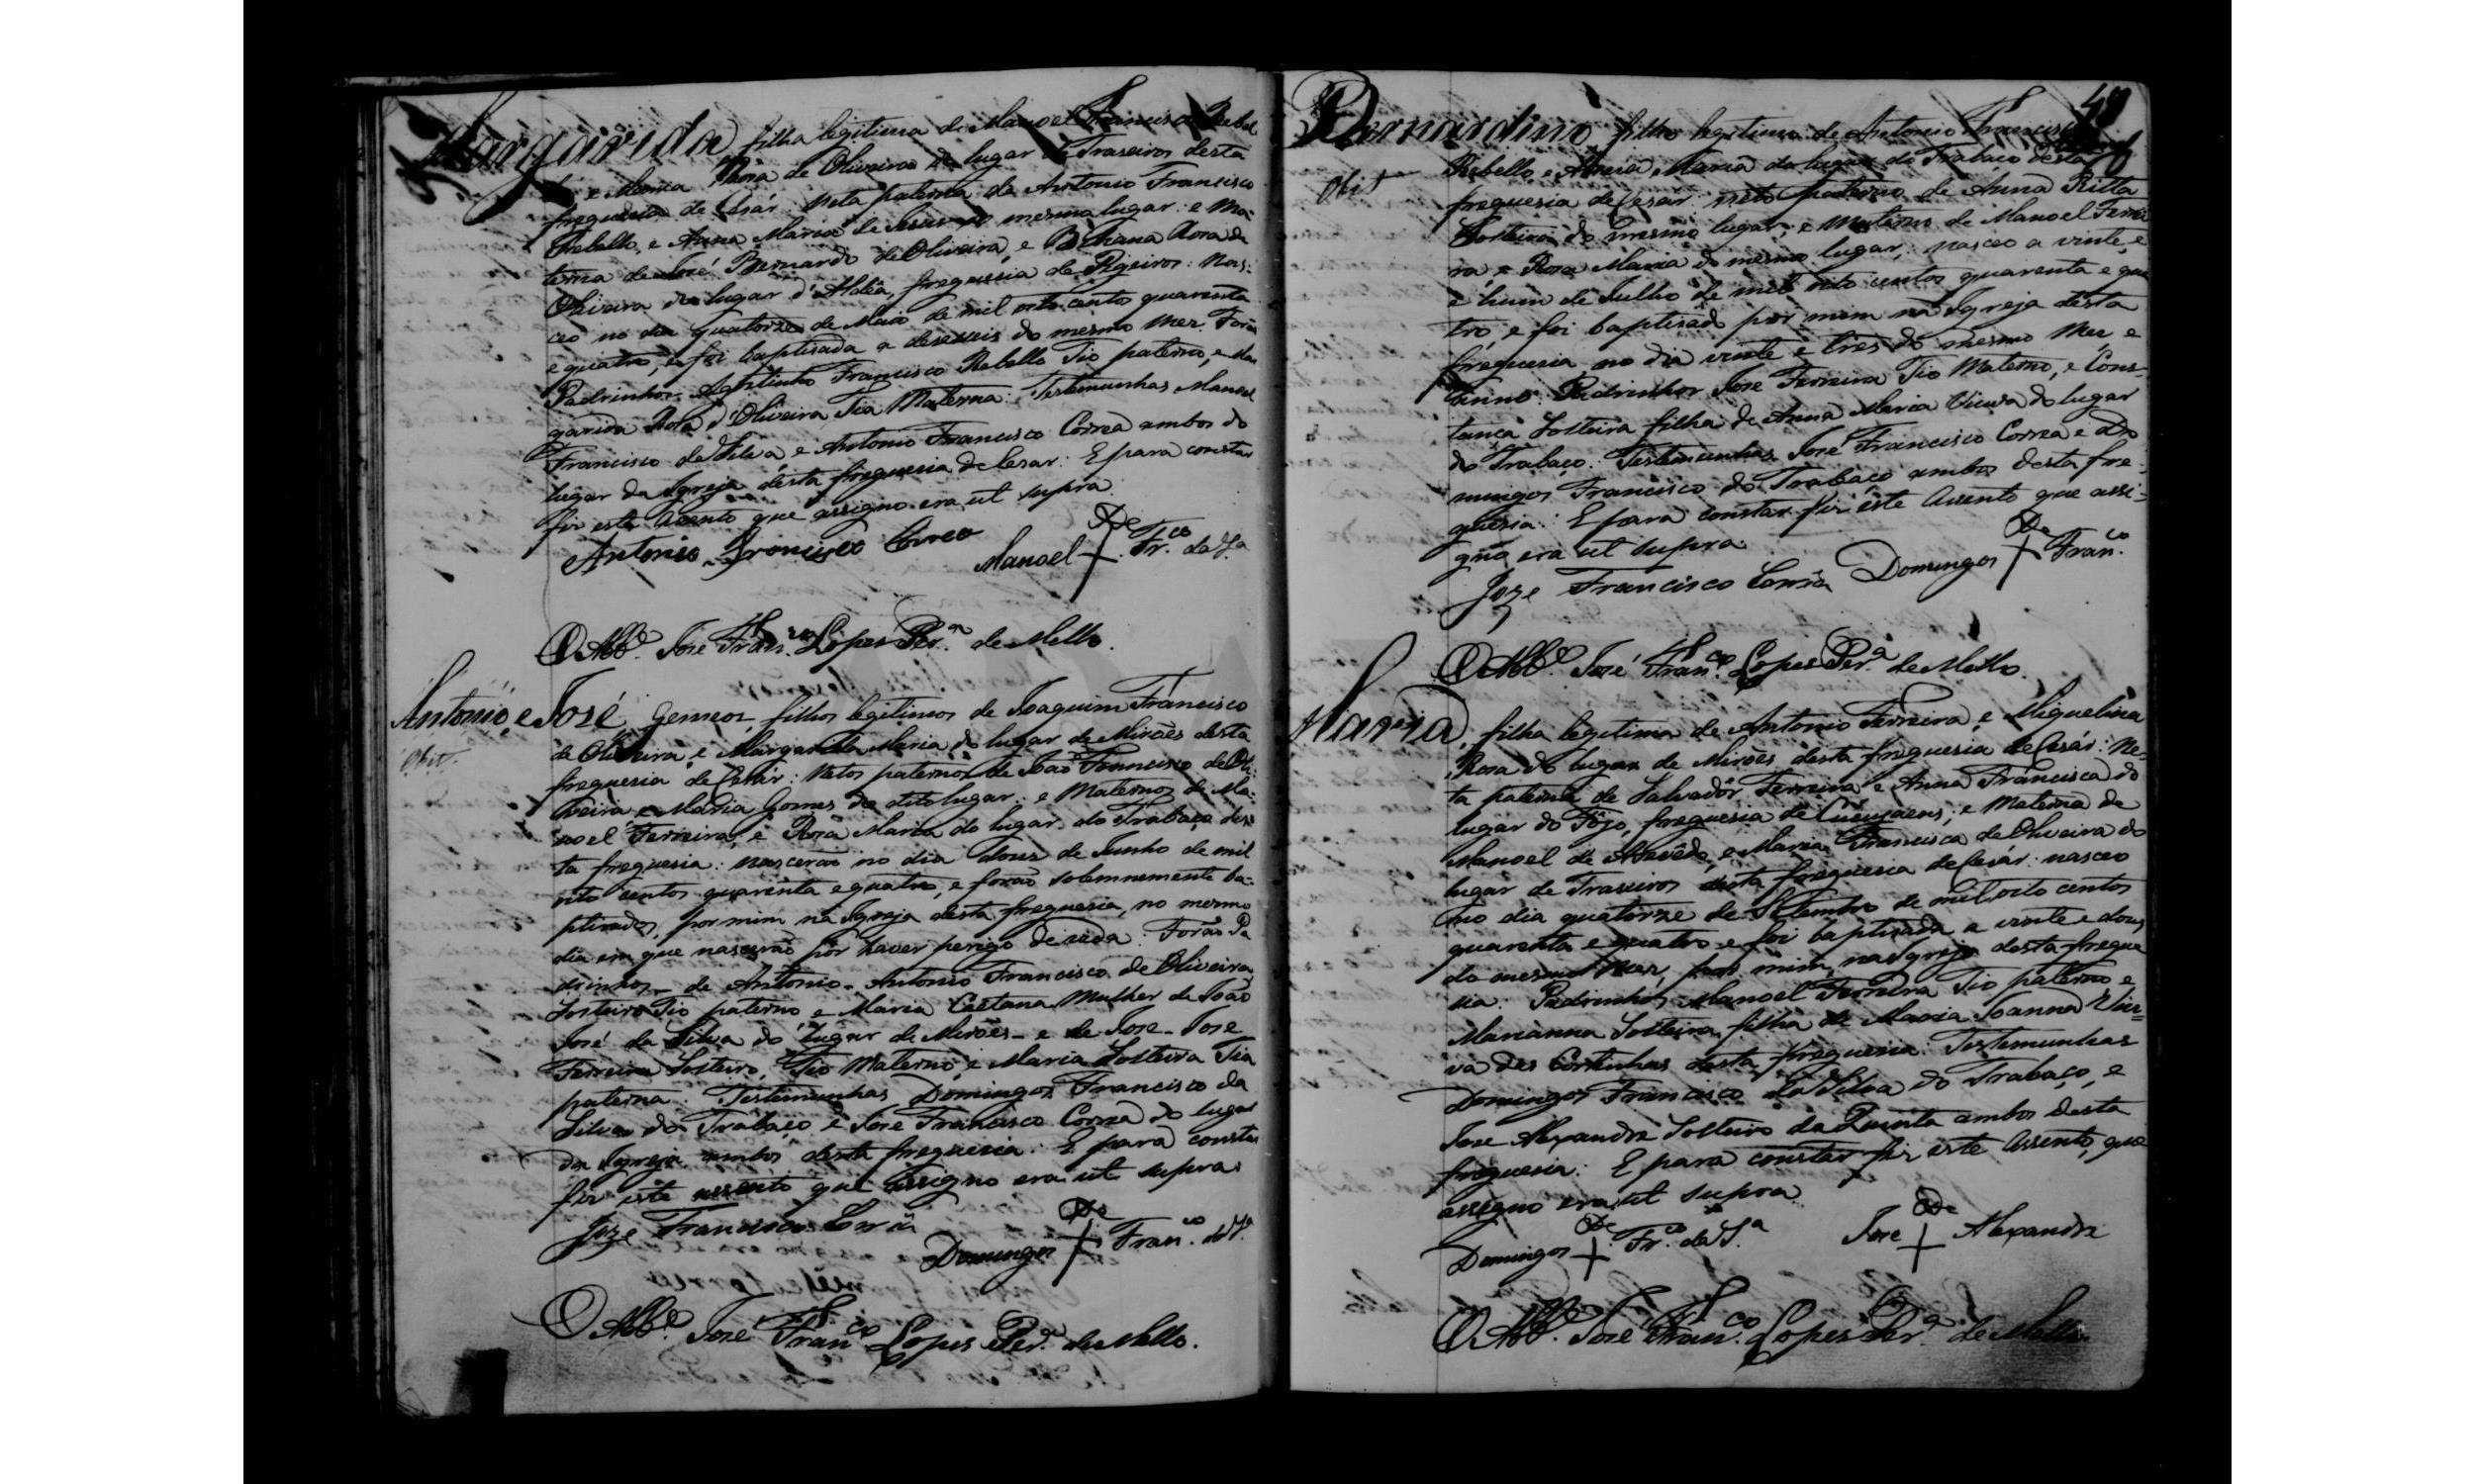 Margarida filha legitima de Manoel Francisco Rebel
lo, e Maria Roza de Oliveira do lugar de Traseiros desta
freguesia de Cesár: Neta paterna de Antonio Francisco
Rebello, e Anna Maria de Jesus do mesmo lugar: e Ma-
terna de José Bernardo de Oliveira, e Rosa de
Oliveira do lugar d'Aldêa, freguesia de Pigeiros: Nas-
ceo no dia quatorze de Maio de mil oito centos quarenta
e quatro, e foi baptisada a deseseis do mesmo mez. Forão
Padrinhos Agostinho Francisco Rebello Tio paterno, e Mar
garida Rosa d'Oliveira Tia Materna: Testemunhas Manoel
Francisco da Silva, e Antonio Francisco Corrêa ambos do
lugar da Igreja desta freguesia de Cesar: E para constar
fiz este Assento que assigno era ut supra.
Antonio Francisco Correo
Manoel + Fr.co da S.a
De
O Abb.e José Fran.co Lopes Per.a de Mello.
Antonio, e José Gemeos filhos legitimos de Joaquim Francisco
Obit.
de Oliveira, e Margarida Maria do lugar de Mirões desta
freguesia de Cesár: Netos paternos de João Francisco de Oli-
veira e Maria Gomes do dito lugar: e Maternos de Ma-
noel Ferreira, e Rosa Maria do lugar do Trabaço des-
ta freguesia: nascerão no dia dous de Junho de mil
oito centos quarenta e quatro, e forão solemnemente ba-
ptisados, por mim na Igreja desta freguesia, no mesmo
dia em que nascerão por haver perigo de vida. Forão Pa
drinhos - de Antonio - Antonio Francisco de Oliveira
Solteiro Tio paterno e Maria Caetana Mulher de João
José da Silva do lugar de Mirões - e de José - José
Ferreira Solteiro, Tio Materno, e Maria Solteira Tia
paterna: Testemunhas Domingos Francisco da
Silva do Trabaço e José Francisco Correa do lugar
da Igreja ambos desta freguesia: E para constar
fiz este assento que assigno era ut supra.
Joze Francisco Corrêa
De
Domingos + Fran.co da S.a
O Abb.e José Fran.co Lopes Per.a de Mello.
49
Bernardino filho legitimo de Antonio Francisco
Obit
Rebello, e Maria do lugar do Trabaço desta
freguesia de Cesár: neto paterno de Anna Ritta
Solteira do mesmo lugar; e Materno de Manoel Ferrei
ra e Rosa Maria do mesmo lugar: nasceo a vinte, e
e hum de Julho de mil oito centos quarenta e qua
tro, e foi baptisado por mim na Igreja desta
freguesia no dia vinte e tres do mesmo Mez, e
anno. Padrinhos José Ferreira Tio Materno, e Cons-
tança Solteira filha de Anna Maria Viuva do lugar
do Trabaço. Testemunhas José Francisco Correa e Do
mingos Francisco do Trabaço ambos desta fre-
guesia: E para constar fiz este Assento que assi-
gno era ut supra.
De
Joze Francisco Corrêa Domingos + Fran.co
O Abb.e José Fran.co Lopes Per.a de Mello.
Maria, filha legitima de Antonio Ferreira, e Miguelina
Rosa do lugar de Mirões desta freguesia de Cesár: Ne-
ta paterna de Salvadôr Ferreira e Anna Francisca do
lugar do Fôjo, freguesia de; e Materna de
Manoel de Azevêdo, e Maria Francisca de Oliveira do
lugar de Traseiros desta freguesia de Cesár: nasceo
no dia quatorze de Setembro de mil oito centos
quarenta e quatro e foi baptisada a vinte e dous
do mesmo Mez, por mim, na Igreja desta fregue
sia. Padrinhos Manoel Ferreira Tio paterno e
Marianna Solteira filha de Maria Joanna Viu=
va das Cortinhas desta freguesia. Testemunhas
Domingos Francisco da Silva do Trabaço, e
José Alexandre Solteiro da Quinta ambos desta
freguesia: E para constar fiz este Assento, que
assigno era ut supra.
De De
Domingos + Fr.co da S.a José + Alexandre
O Abb.e José Fran.co Lopes Per.a de Mello.